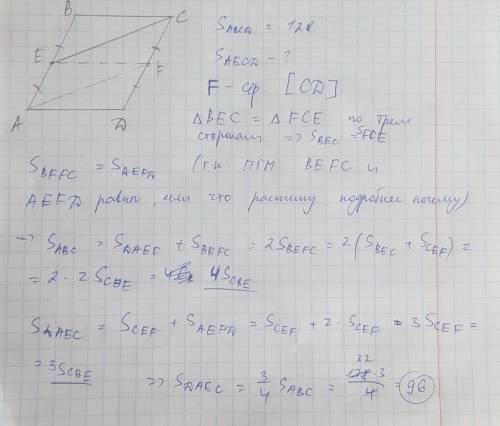 B C
E F
A D
S_ABCD = 128
S_AECD - ?
F - ср [CD]
△BEC = △FCE по трем
сторонам => S_BEC = S_FCE
S_BEFC = S_AEFD (т.к. ПГМ BEFC и
AEFD равны, если что распишу подробнее почему)
=> S_ABC = S_DAEF + S_BEFC = 2S_BEFC = 2(S_BEC + S_CEF) =
= 2 · 2S_CBE = 4S_CBE
S_DAEC = S_CEF + S_AEFD = S_CEF + 2 · S_CEF = 3S_CEF =
= 3S_CBE => S_DAEC = 3/4 S_ABC = 128 · 3 / 4 = 96
32